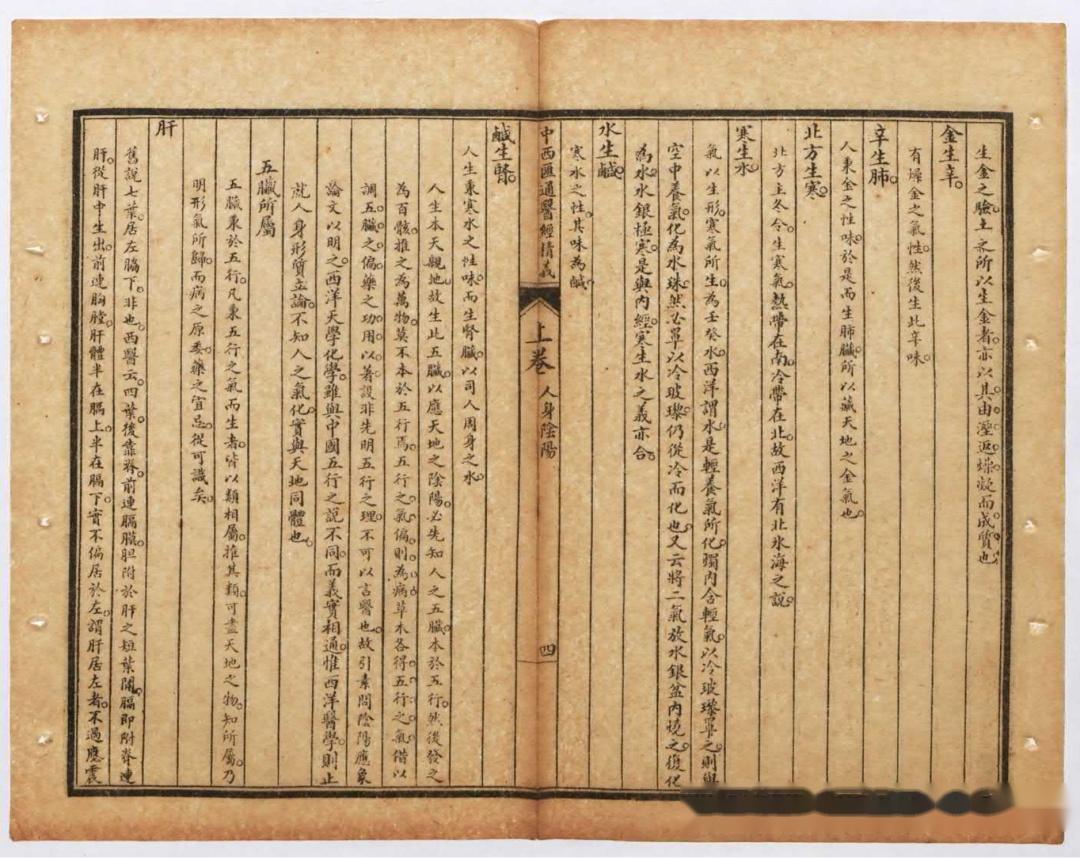 生金之驗土之所以生金者亦以其由溼返燥凝而成質也
金生辛
有燥金之氣性然後生此辛味
辛生肺
人秉金之性味於是而生肺臟所以藏天地之金氣也
北方生寒
北方主冬令生寒氣熱帶在南冷帶在北故西洋有北氷海之說
寒生水
氣以生形寒氣所生為壬癸水西洋謂水是輕養氣所化獨內含輕氣以冷玻瓈罩之則與
空中養氣化為水珠然必罩以冷玻瓈仍從冷而化也又云將二氣放水銀盆內燒之復化
為水水銀極寒是與內經寒生水之義亦合
水生鹹
寒水之性其味為鹹
中西匯通醫經精義 上卷 人身陰陽 四
鹹生腎
人生秉寒水之性味而生腎臟以司人周身之水
人生本天親地故生此五臟以應天地之陰陽必先知人之五臟本於五行然後發之
為百骸推之為萬物莫不本於五行焉五行之氣偏則為病草木各得五行之氣借以
調五臟之偏藥之功用以著設非先明五行之理不可以言醫也故引素問陰陽應象
論文以明之西洋天學化學雖與中國五行之說不同而義實相通惟西洋醫學則止
就人身形質立論不知人之氣化實與天地同體也
五臟所屬
五臟秉於五行凡秉五行之氣而生者皆以類相屬推其類可盡天地之物知所屬乃
明形氣所歸而病之原委藥之宜忌從可識矣
肝
舊說七葉居左脇下非也西醫云四葉後靠脊前連膈膜胆附於肝之短葉間膈即附脊連
肝從肝中生出前連胸膛肝體半在膈上半在膈下實不偏居於左謂肝居左者不過應震